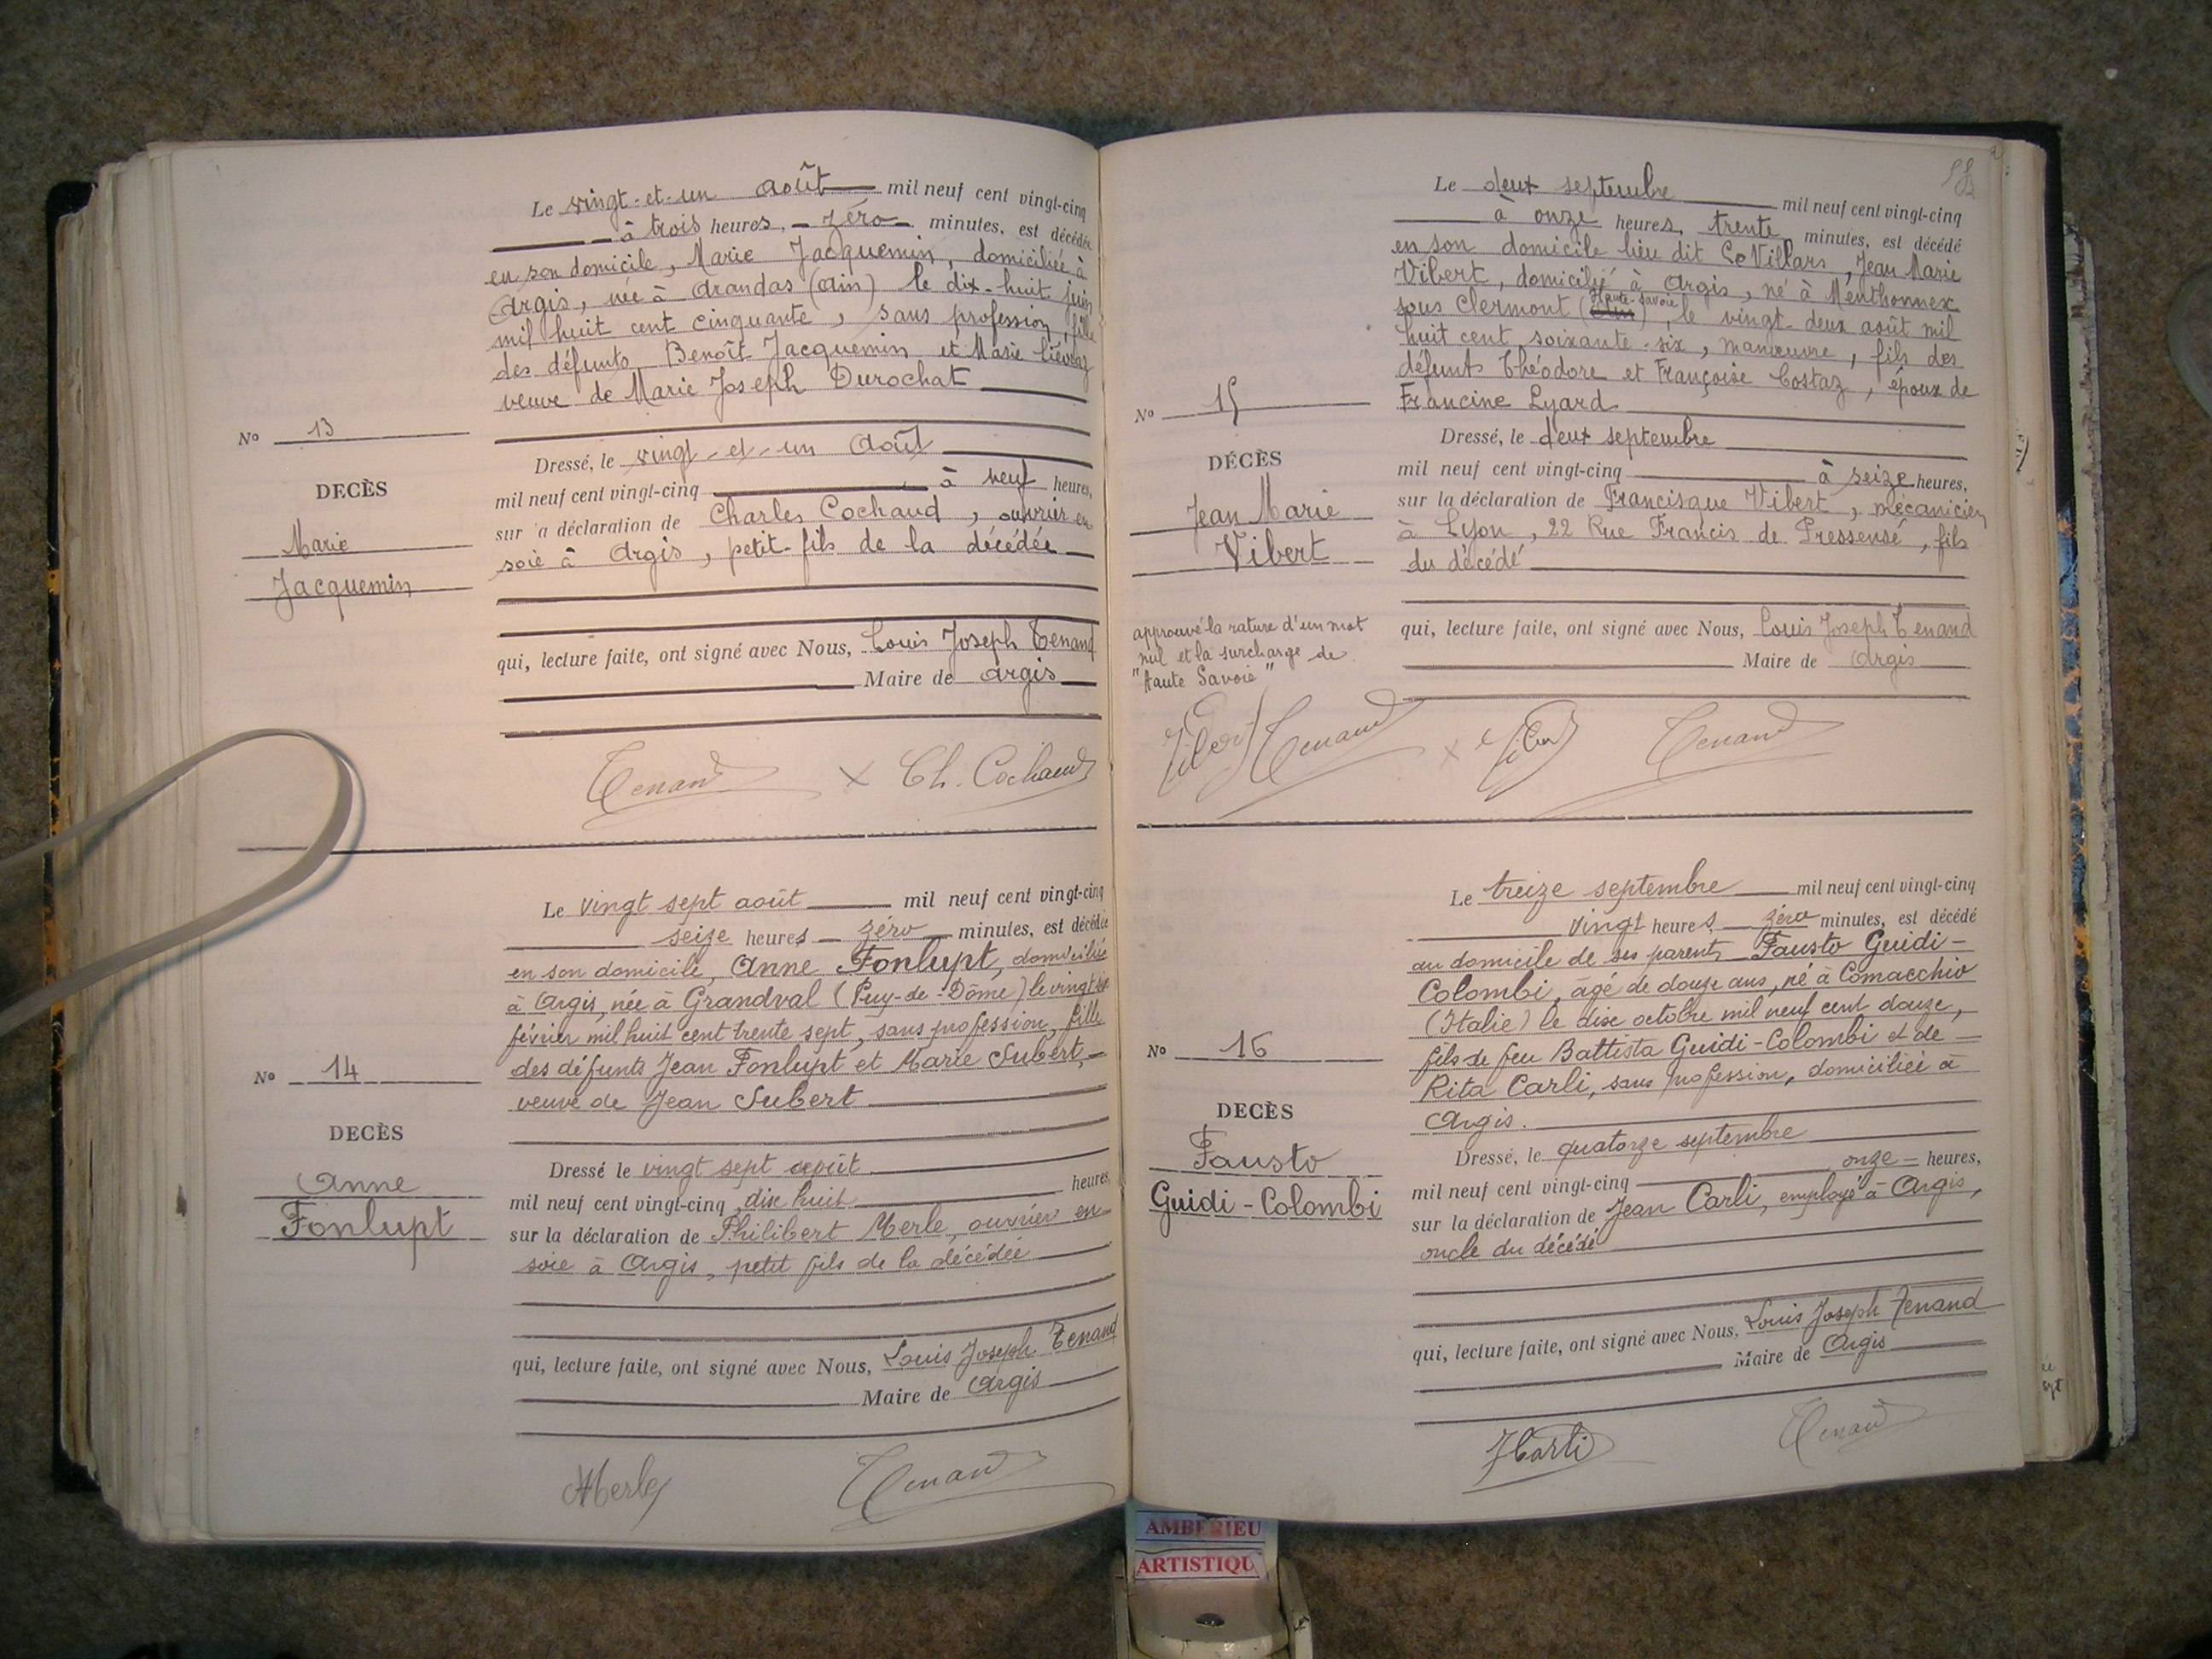 Le vingt-et-un août mil neuf cent vingt-cinq
à trois heures, zéro minutes, est décédée
en son domicile, Marie Jacquemin, domiciliée à
Argis, née à Arandas (Ain) le dix-huit juin
mil huit cent cinquante, sans profession, fille
des défunts Benoît Jacquemin et Marie
veuve de Marie Joseph Durochat
No 13
DECÈS
Marie
Jacquemin
Dressé, le vingt-et-un Août
mil neuf cent vingt-cinq à neuf heures,
sur a déclaration de Charles Cochaud, ouvrier en
soie à Argis, petit-fils de la décédée
qui, lecture faite, ont signé avec Nous, Louis Joseph Tenand
Maire de Argis
Tenand x Ch. Cochaud
Le vingt sept août mil neuf cent vingt-cinq
seize heures zéro minutes, est décédée
en son domicile, Anne Fonlupt, domiciliée
à Argis, née à Grandval (Puy-de-Dôme) le vingt six
février mil huit cent trente sept, sans profession, fille
des défunts Jean Fonlupt et Marie Subert,
veuve de Jean Subert
No 14
DECÈS
Anne
Fonlupt
Dressé le vingt sept août
mil neuf cent vingt-cinq dix huit heures
sur la déclaration de Philibert Merle, ouvrier en
soie à Argis, petit fils de la décédée
qui, lecture faite, ont signé avec Nous, Louis Joseph Tenand
Maire de Argis
Merle Tenand
Le deux septembre mil neuf cent vingt-cinq
à onze heures, trente minutes, est décédé
en son domicile lieu dit Le Villars, Jean Marie
Vibert, domicilié à Argis, né à Menthonnex
sous Clermont (Haute-Savoie), le vingt-deux août mil
huit cent soixante-six, manœuvre, fils des
défunts Théodore et Françoise Costaz, époux de
Francine Lyard
No 15
DÉCÈS
Jean Marie
Vibert
Dressé, le deux septembre
mil neuf cent vingt-cinq à seize heures,
sur la déclaration de Francisque Vibert, mécanicien
à Lyon, 22 Rue Francis de Pressensé, fils
du décédé
approuvé la rature d'un mot
nul et la surcharge de
"Haute Savoie"
qui, lecture faite, ont signé avec Nous, Louis Joseph Tenand
Maire de Argis
Vibert Tenand x Vibert Tenand
Le treize septembre mil neuf cent vingt-cinq
vingt heures zéro minutes, est décédé
au domicile de ses parents Fausto Guidi-
Colombi, agé de douze ans, né à Comacchio
(Italie) le dix octobre mil neuf cent douze,
fils de feu Battista Guidi-Colombi et de
Rita Carli, sans profession, domiciliée à
Argis.
No 16
DECÈS
Fausto
Guidi-Colombi
Dressé, le quatorze septembre
mil neuf cent vingt-cinq onze heures,
sur la déclaration de Jean Carli, employé à Argis,
oncle du décédé
qui, lecture faite, ont signé avec Nous, Louis Joseph Tenand
Maire de Argis
JCarli Tenand
AMBERIEU
ARTISTIQU